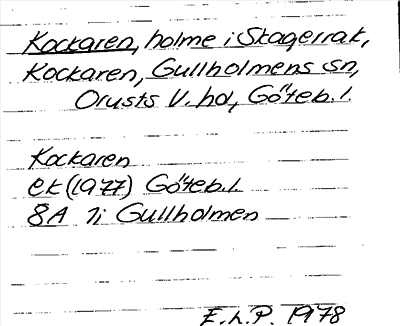 Kockaren, holme i Skagerrak,
Kockaren, Gullholmens sn,
Orusts V. hd, Göteb. l.
Kockaren
ek (1977) Göteb. l.
8A 1i Gullholmen
E.h.P. 1978